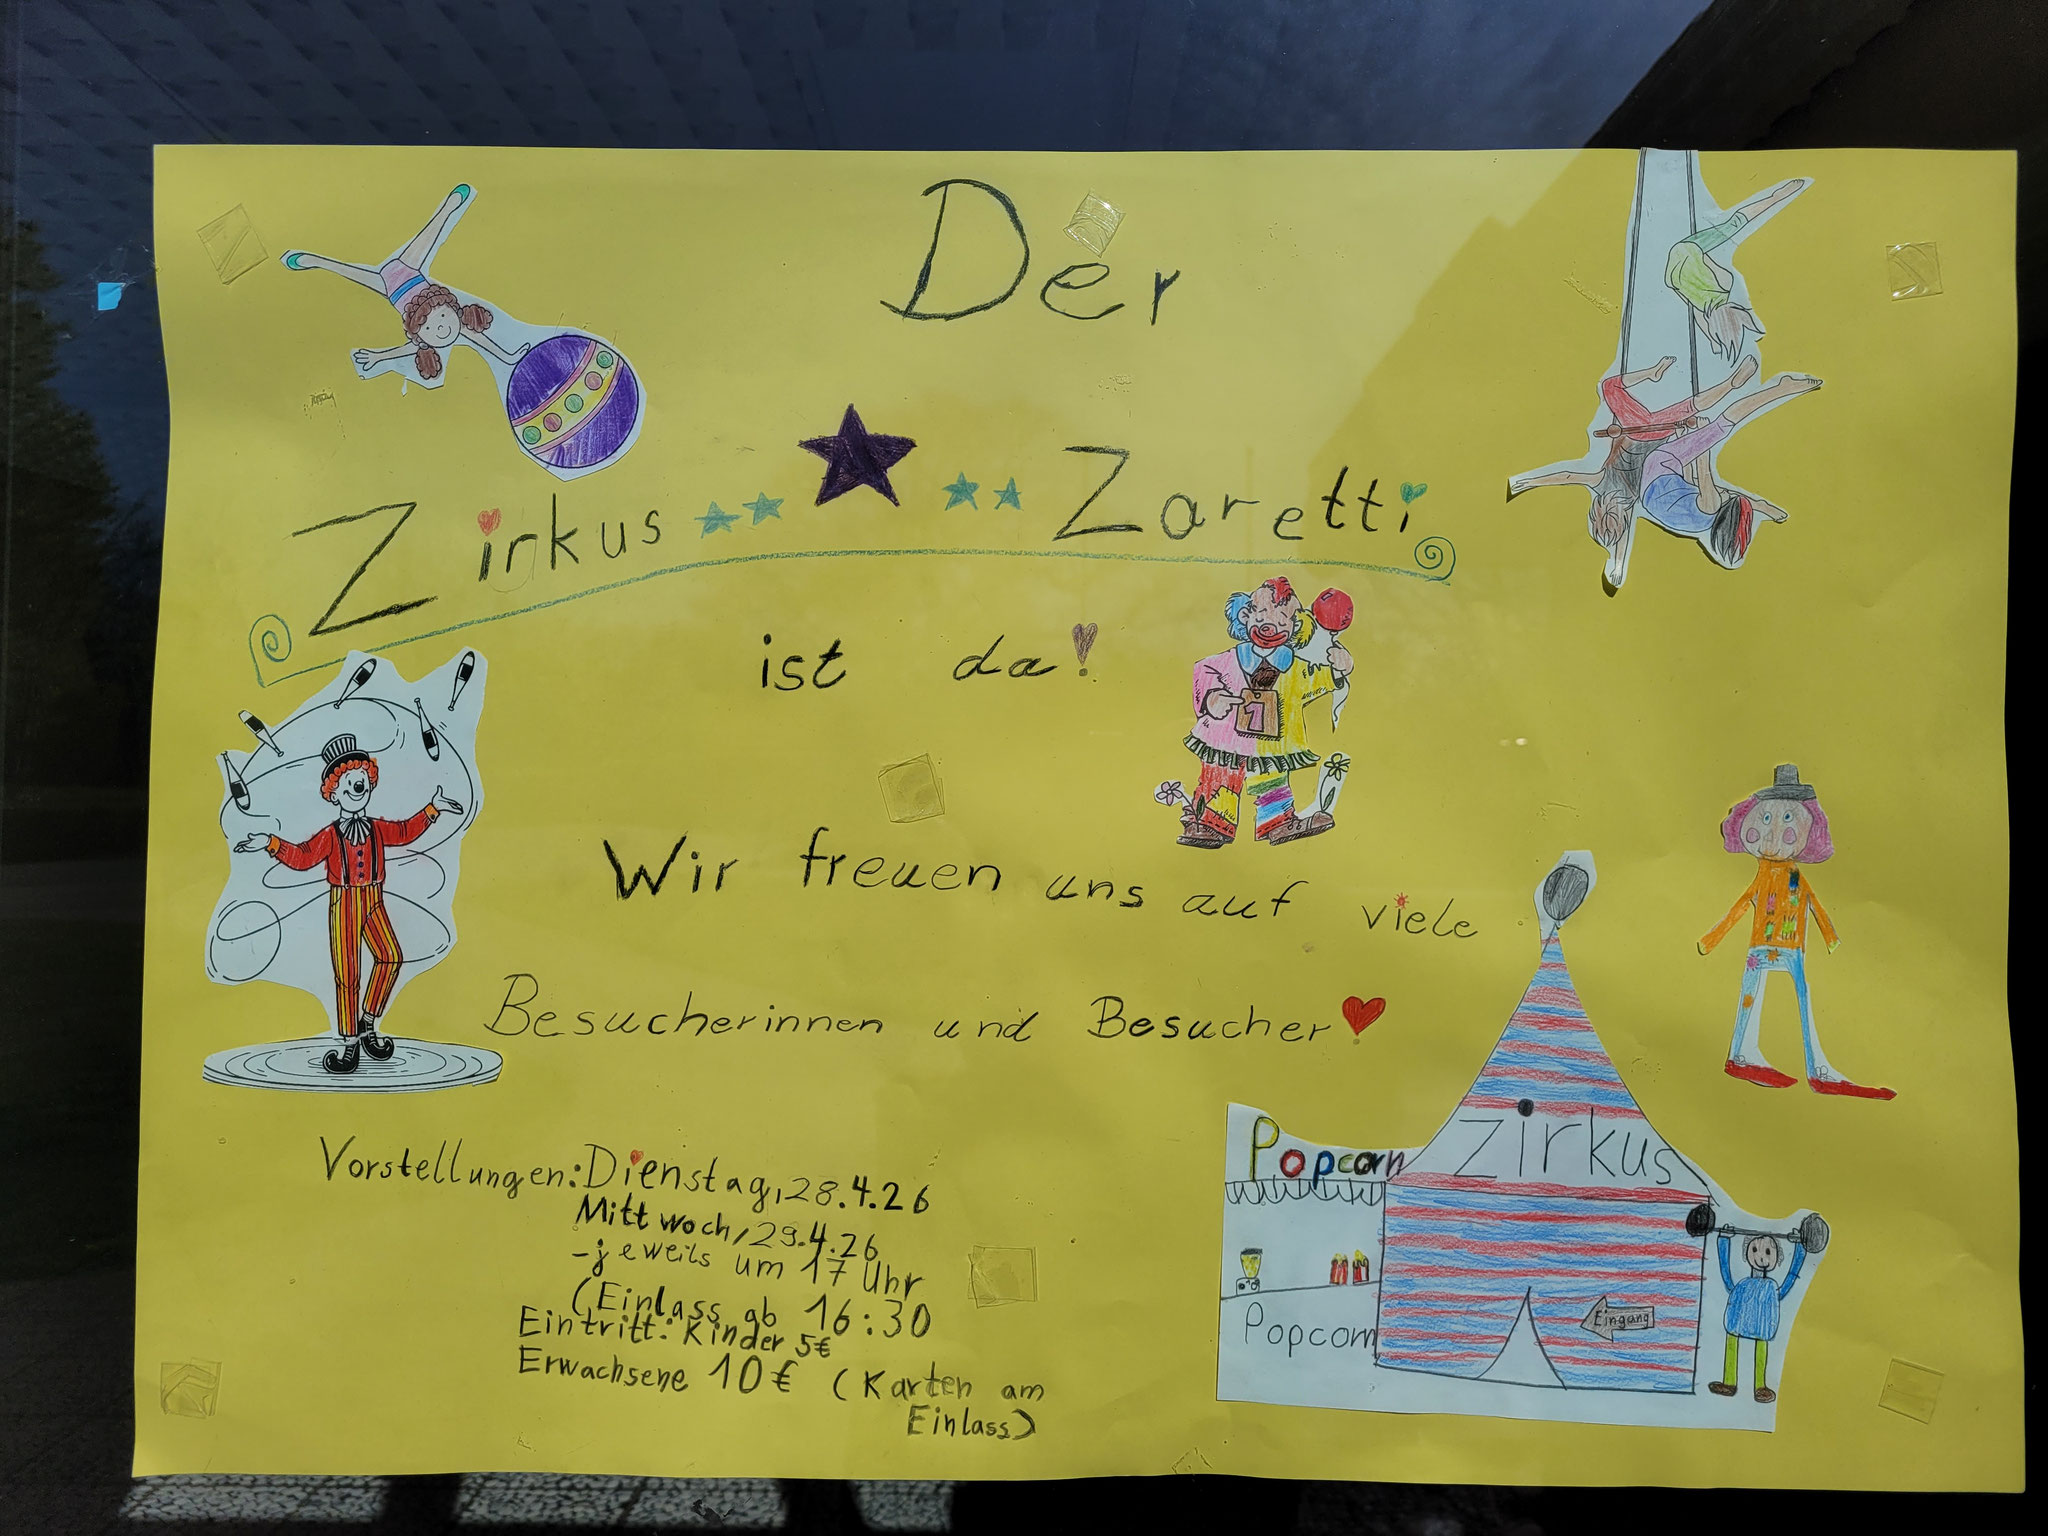 Der
Zirkus Zaretti
ist da!
1
Wir freuen uns auf viele
Besucherinnen und Besucher!
Vorstellungen: Dienstag, 28.4.26
Mittwoch, 29.4.26
- jeweils um 17 Uhr
(Einlass ab 16:30
Eintritt: Kinder 5€
Erwachsene 10€ (Karten am
Einlass)
Popcorn
Zirkus
Eingang
Popcorn